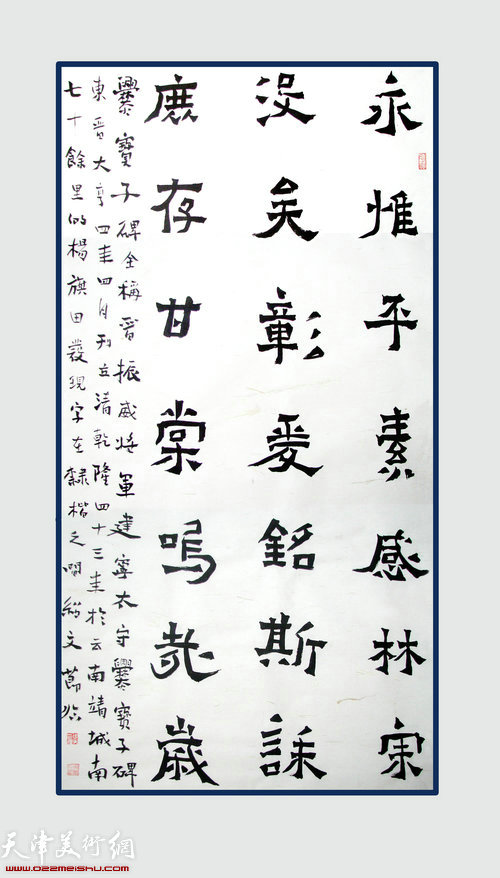 永惟平素感林宗
没矣彰爰銘斯誄
庶存甘棠嗚㢤歲
爨寶子碑全稱晉振威將軍建寧太守爨寶子碑
東晉大亨四年四月刊立清乾隆四十三年於云南靖城南
七十餘里的楊旗田發現字在隸楷之間 文節臨
天津美術網
www.022meishu.com